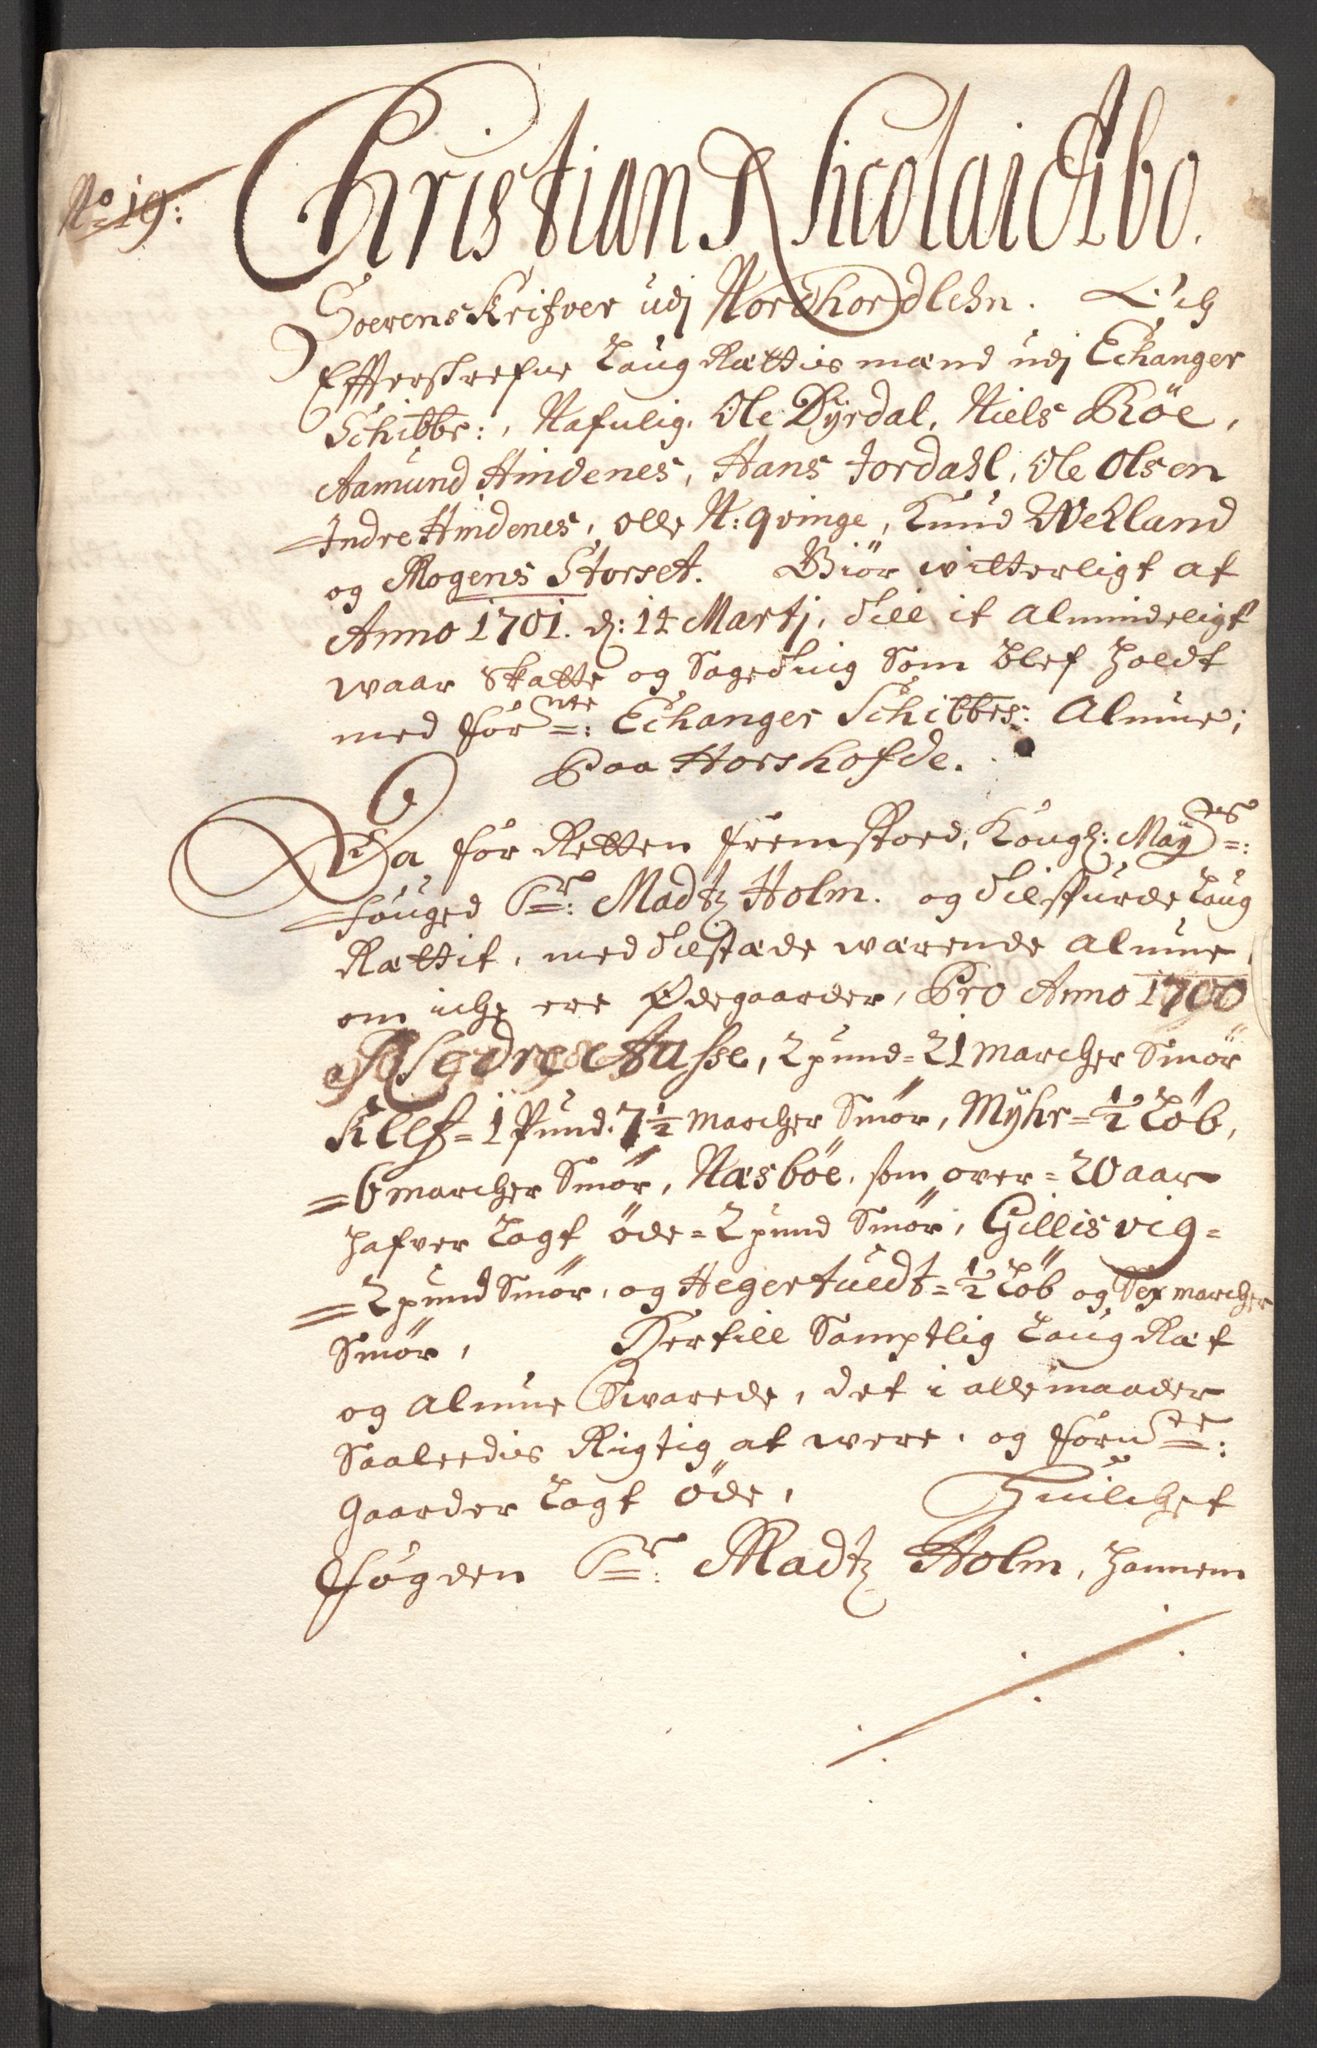 No 19:
Christian Nicolai Abo.
Soerenskrifver udj Nordhordlehn. Och
Efterskrefne Laug Rættismænd udj Echanger
Schibbr:, Nafnlig. Ole Dyrdal, Niels Röe,
Aamund Hindenes, Hans Jordahl, Ole Olsen
Indre Hindenes, olle N: qvinge, Knud Wekland
og Mogens Storset. Giör witterligt at
Anno 1701. d: 14 Martj, till it almindeligt
waar Skatte og Sageting som blef holdt
med forñte: Echanger Schibbrs: Almue;
Paa Horshofde.
Da for Retten fremstoed, Kongl: Mayts:
fouged Sr: Madtz Holm. og tilspurde Laug
Rættit, med tilstæde wærende Almue,
om iche ere Ødegaarder, Pro Anno 1700
Nedre Aasse, 2 pund = 21 marcher Smör
Kleff = 1 Pund. 7½ marcher Smör, Myhr = ½ Löb,
= 6 marcher Smör, Næsböe, som over = 20 aar
hafver Lagt öde = 2 pund Smör, Gillisvig =
= 2 pund Smör, og Hegertuedt = ½ Löb og Sex marcher
Smör, Hertill Samptlig Laug Ræt
og Almue Swarede, det i alle maader
Saaleedis Rigtig at were, og fornte:
gaarder Lagt öde, Huilchet
fogden Sr: Madtz Holm, hannem